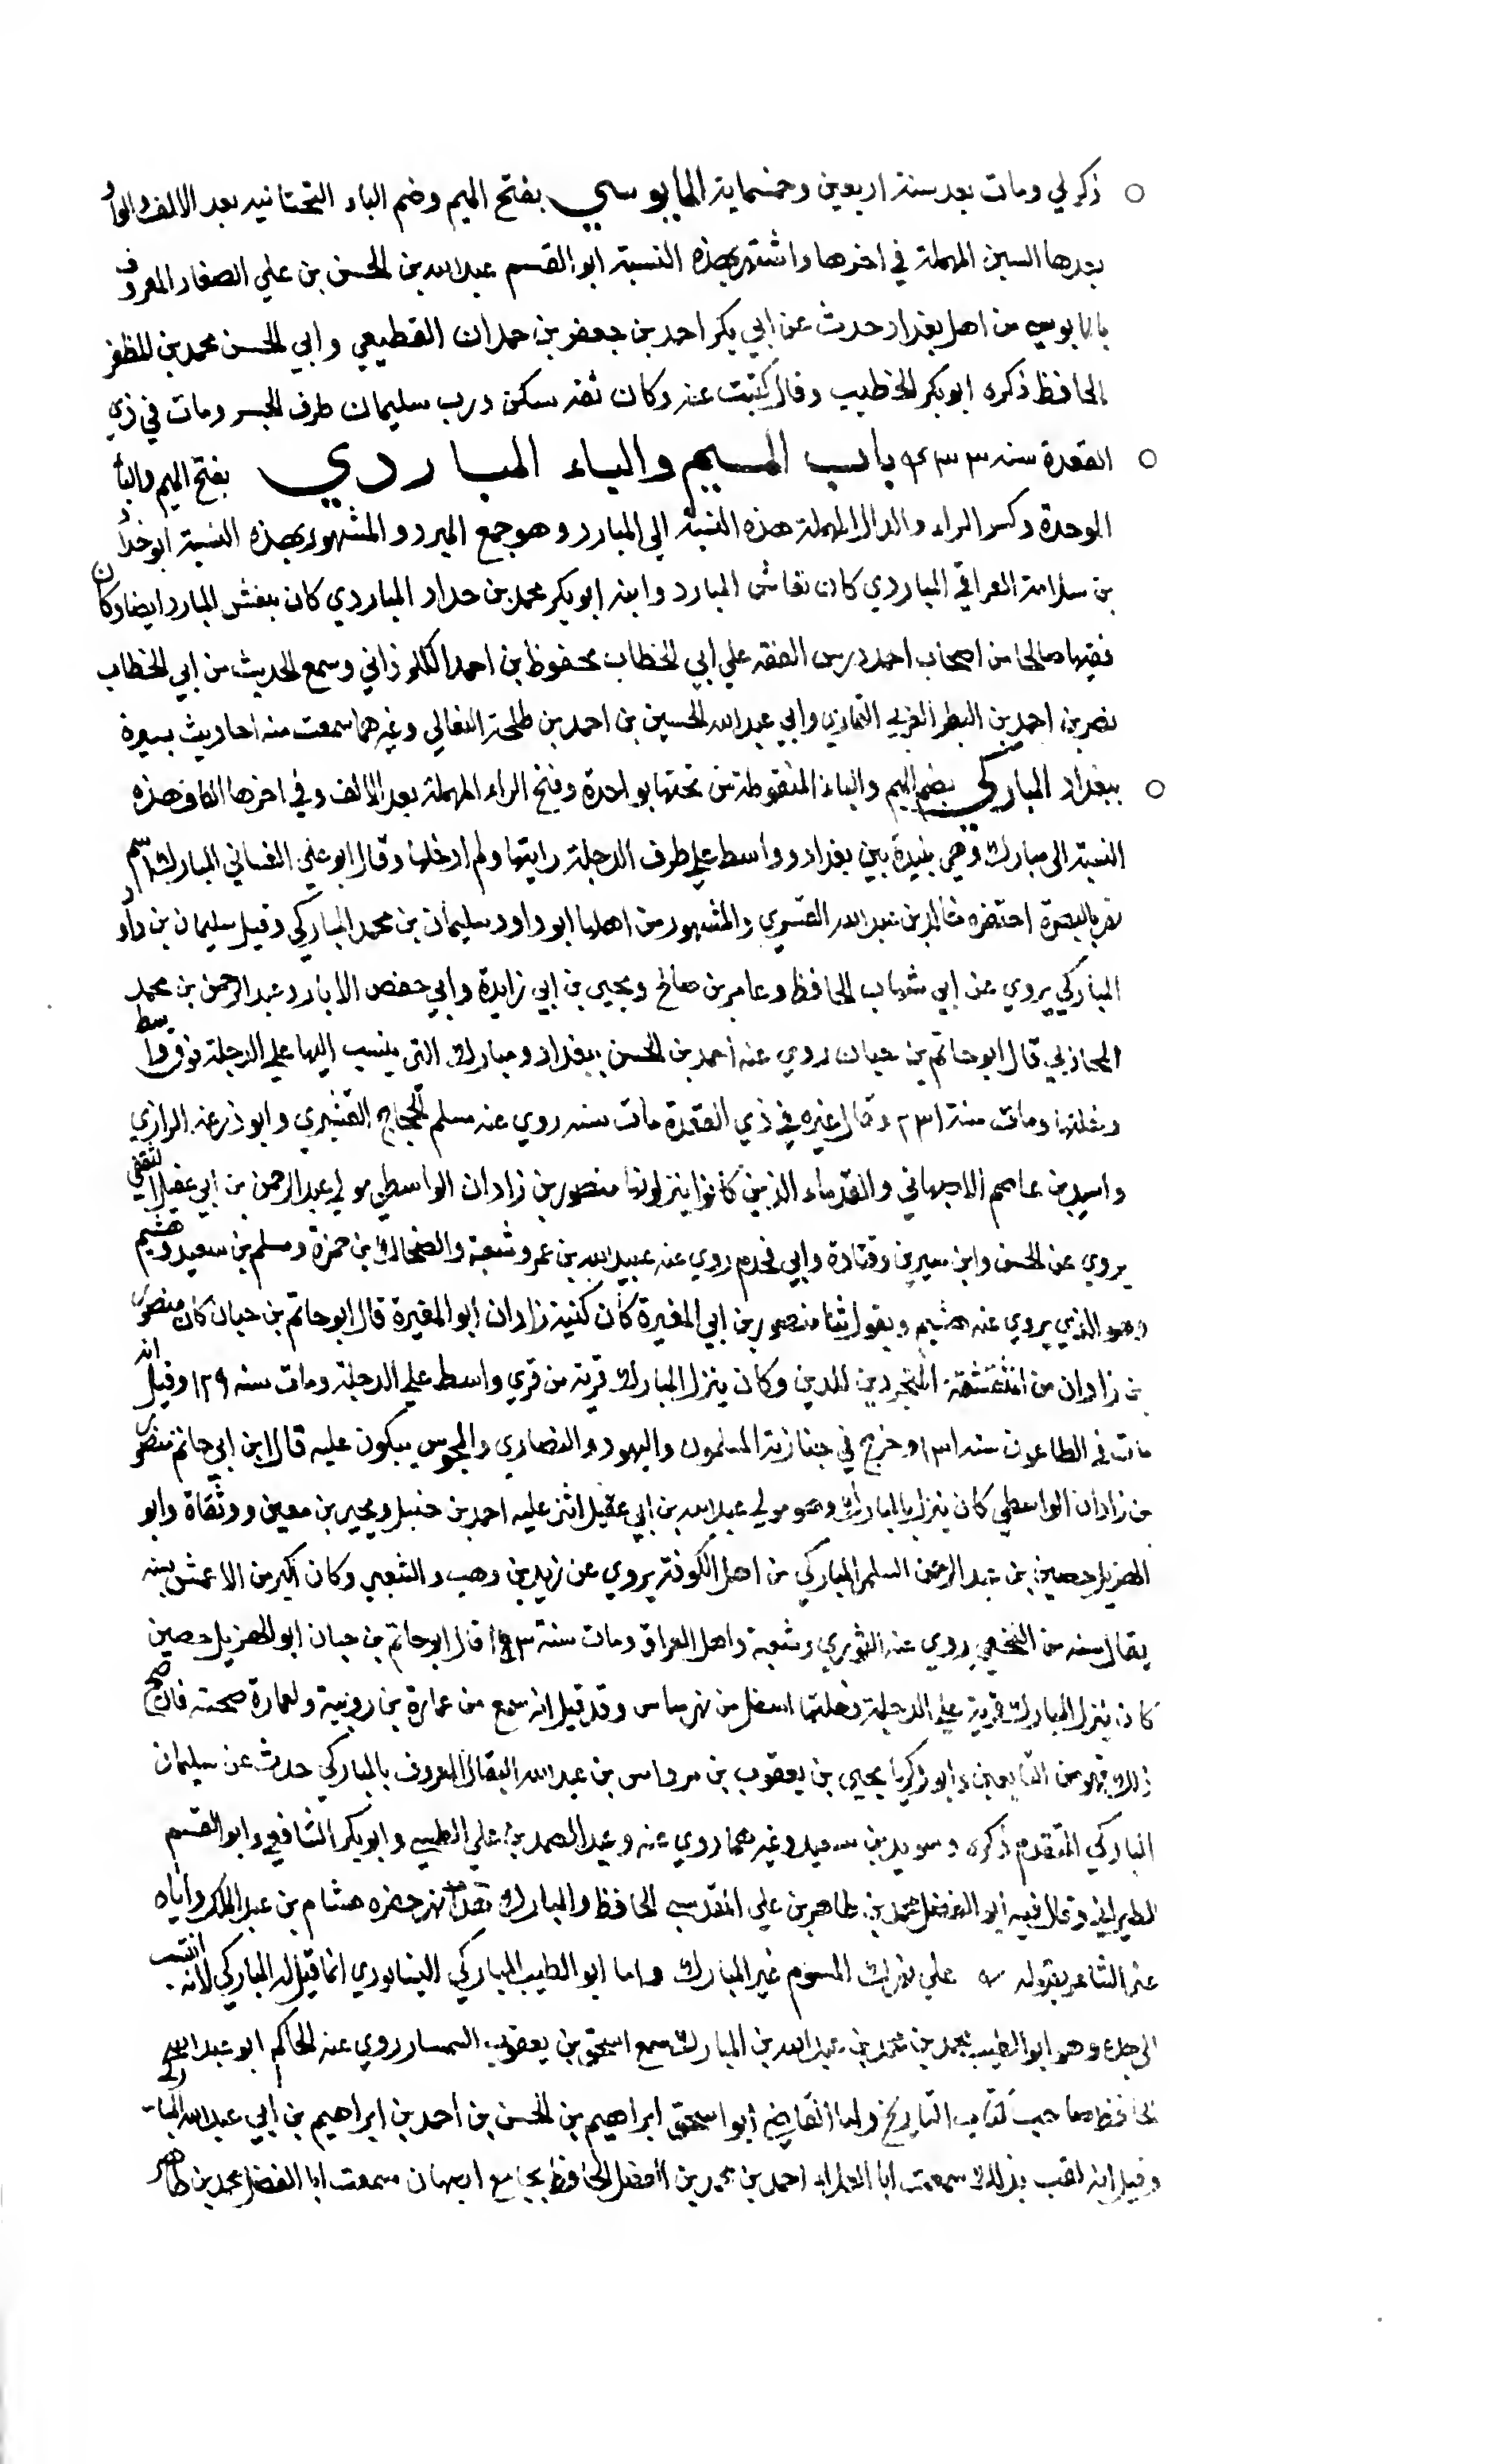 ذكر لي ومات بعد سنة اربعين وخمسماية المابوسي بفتح الميم وضم الباء التحتانيه بعد الالف والواو
بعدها السين المهملة في اخرها واشتهر بهذه النسبة ابو القسم عبد الله بن الحسن بن علي الصفار المعروف
بالمابوسي من اهل بغداد حدث عن ابي بكر احمد بن جعفر بن حمدان القطيعي وابي الحسن محمد بن المظفر
الحافظ ذكره ابو بكر الخطيب وقال كتبت عنه وكان ثقه سكن درب سليمان طرف الجسر ومات في ذي
القعدة سنه باب الميم والباء المباردي بفتح الميم والبا
الموحدة وكسر الراء والدال المهملة هذه النسبة الي المبارد وهو جمع المبرد والمشهور بهذه النسبة ابو
بن سلامة العراقي المباردي كان نقاش المبارد وابنه ابو بكر محمد بن حداد المباردي كان ينقش المبارد ايضا وكان
فقيها صالحا من اصحاب احمد درس الفقه علي ابي الخطاب محفوظ بن احمد الكلوذاني وسمع الحديث من ابي الخطاب
نصر بن احمد بن البطر وابي عبد الله الحسين بن احمد بن طلحة النعالي وغيرهما سمعت منه احاديث يسيرة
ببغداد المباركي بضم الميم والباء المنقوطة من تحتها بواحدة وفتح الراء المهملة بعد الالف وفي اخرها الكاف هذه
النسبة الى مبارك وهي بليدة بين بغداد وواسط علي طرف الدجلة رايتها ولم ادخلها وقال ابو علي الغساني المبارك اسم
نهر بالبصرة احتفره خالد بن عبد الله القسري والمشهور من اهلها ابو داود سليمان بن محمد المباركي وقيل سليمان بن داود
المباركي يروي عن ابي شهاب الحافظ وعامر بن صالح ويحيى بن ابي زايدة وابي حفص الابار وعبد الرحمن بن محمد
المحاربي قال ابو حاتم بن حبان روي عنه احمد بن الحسن ببغداد ومبارك التي ينسب اليها علي الدجلة فوق واسط
دخلتها ومات سنة ٢٣١ وقال غيره في ذي القعدة مات سنه روي عنه مسلم الحجاج القشيري وابو زرعه الرازي
واسيد بن عاصم الاصبهاني والقدماء الذين كانوا ينزلونها منصور بن زادان الواسطي مولي عبد الرحمن بن ابي عقيل الثقفي
يروي عن الحسن وابن سيرين وقتادة وابي روي عنه عبيد الله بن عمر وشعبة والضحاك بن حمزة ومسلم بن سعيد وهشيم
وهو الذي يروي عنه هشيم ويقول ثنا منصور بن ابي المغيرة كان كنية زادان ابو المغيرة قال ابو حاتم بن حبان كان منصور
بن زادان من المتقشفة المتجردين للدين وكان ينزل المبارك قرية من قري واسط علي الدجلة ومات سنه ١٢٩ وقيل انه
مات في الطاعون سنه ١٣١ وخرج في جنازته المسلمون واليهود والنصاري والمجوس يبكون عليه قال ابن ابي حاتم منصور
بن زادان الواسطي كان ينزل بالمبارك وهو مولي عبد الله بن ابي عقيل اثني عليه احمد بن حنبل ويحيي بن معين ووثقاة وابو
الهزيل حصين بن عبد الرحمن السلمي المباركي من اهل الكوفة يروي عن زيد بن وهب والشعبي وكان اكبر من الاعمش سنه
يقال سنه من النخعي روي عنه الثوري وشعبة واهل العراق ومات سنة ١٣٦ قال ابو حاتم بن حبان ابو الهزيل حصين
كان ينزل المبارك قرية علي الدجلة دخلتها اسفل من نهر سابس وقد قيل انه سمع من عمارة بن رويبة ولعمارة صحبته فان صح
ذلك فهو من التابعين وابو زكريا يحيى بن يعقوب بن مرداس بن عبد الله البقال المعروف بالمباركي حدث عن سليمان
المباركي المتقدم ذكره وسويد بن سعيد وغيرهما روي عنه وعبد الصمد بن علي الطبسي وابو بكر الشافعي وابو القسم
الطبراني وقال فيه ابو الفضل محمد بن طاهر بن علي المقدسي الحافظ والمبارك نهر حفره هشام بن عبد الملك واياه
عني الشاعر بقوله علي نهرك المسوم غير المبارك واما ابو الطيب المباركي النيسابوري انما قيل له المباركي لانه انتسب
الي جده وهو ابو الطيب محمد بن محمد بن عبد الله بن المبارك سمع اسحق بن يعقوب السمسار روي عنه الحاكم ابو عبد الله
الحافظ صاحب كتاب التاريخ واما القاضي ابو اسحق ابراهيم بن الحسن بن احمد بن ابراهيم بن ابي عبد الله المباركي
وقيل انه لقب بذلك سمعت ابا العلاء احمد بن محمد بن الفضل الحافظ بجامع اصبهان سمعت ابا الفضل محمد بن طاهر